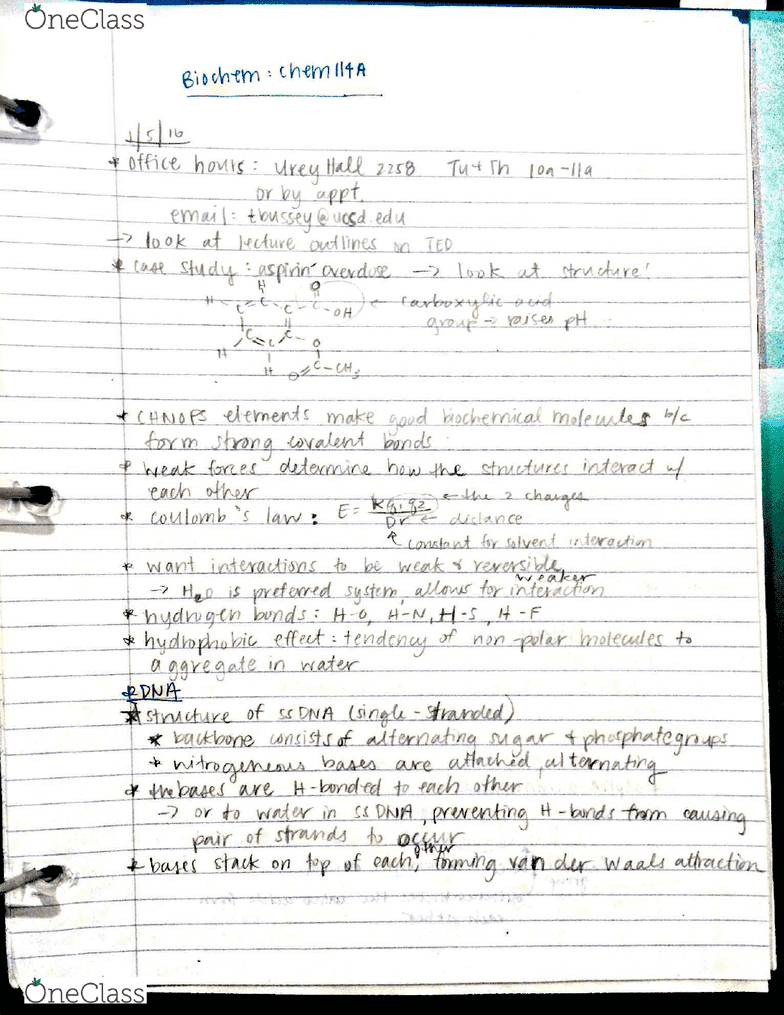 OneClass
Biochem: Chem 114A
1/5/16
* office hours: Urey Hall 2258 Tu + Th 10a-11a
or by appt.
email: tbussey@ucsd.edu
→ look at lecture outlines on TED
* case study: aspirin overdose → look at structure!
H O
H C C C C - OH ← carboxylic acid
group → raises pH
C C C C O
H H O=C-CH3
* CHNOPS elements make good biochemical molecules b/c
form strong covalent bonds
* weak forces determine how the structures interact w/
each other
* coulomb's law: E = kq1q2 ← the 2 charges
Dr ← distance
↖ constant for solvent interaction
* want interactions to be weak & reversible
→ H2O is preferred system, allows for weaker interaction
* hydrogen bonds: H-O, H-N, H-S, H-F
* hydrophobic effect: tendency of non-polar molecules to
aggregate in water
* DNA
* structure of ssDNA (single-stranded)
* backbone consists of alternating sugar & phosphate groups
* nitrogeneous bases are attached, alternating
* the bases are H-bonded to each other
→ or to water in ssDNA, preventing H-bonds from causing
pair of strands to occur
* bases stack on top of each other, forming van der Waals attraction
OneClass